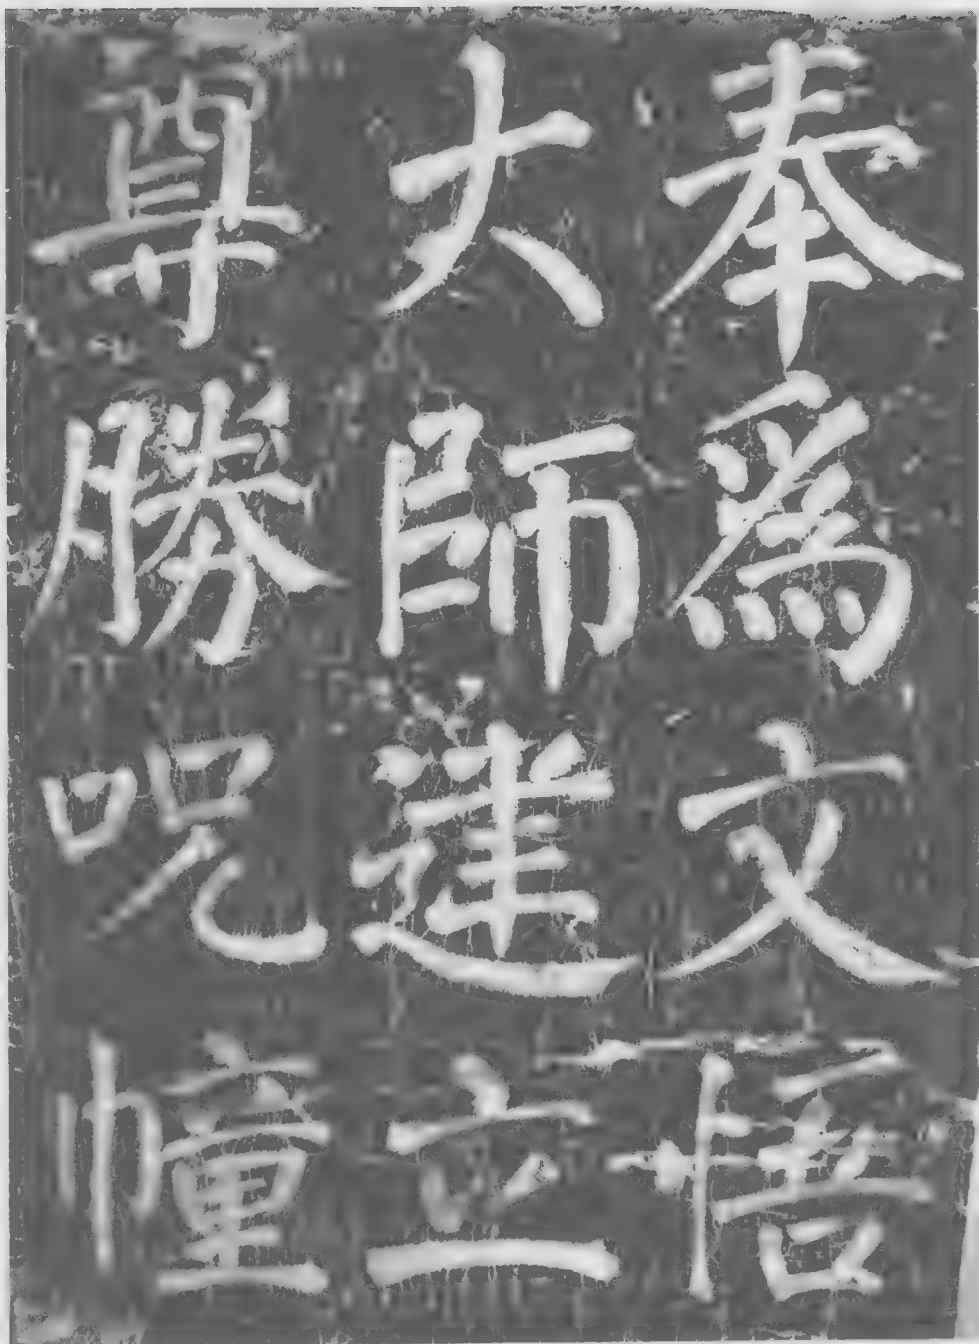 奉爲文悟
大師建立
尊勝呪幢